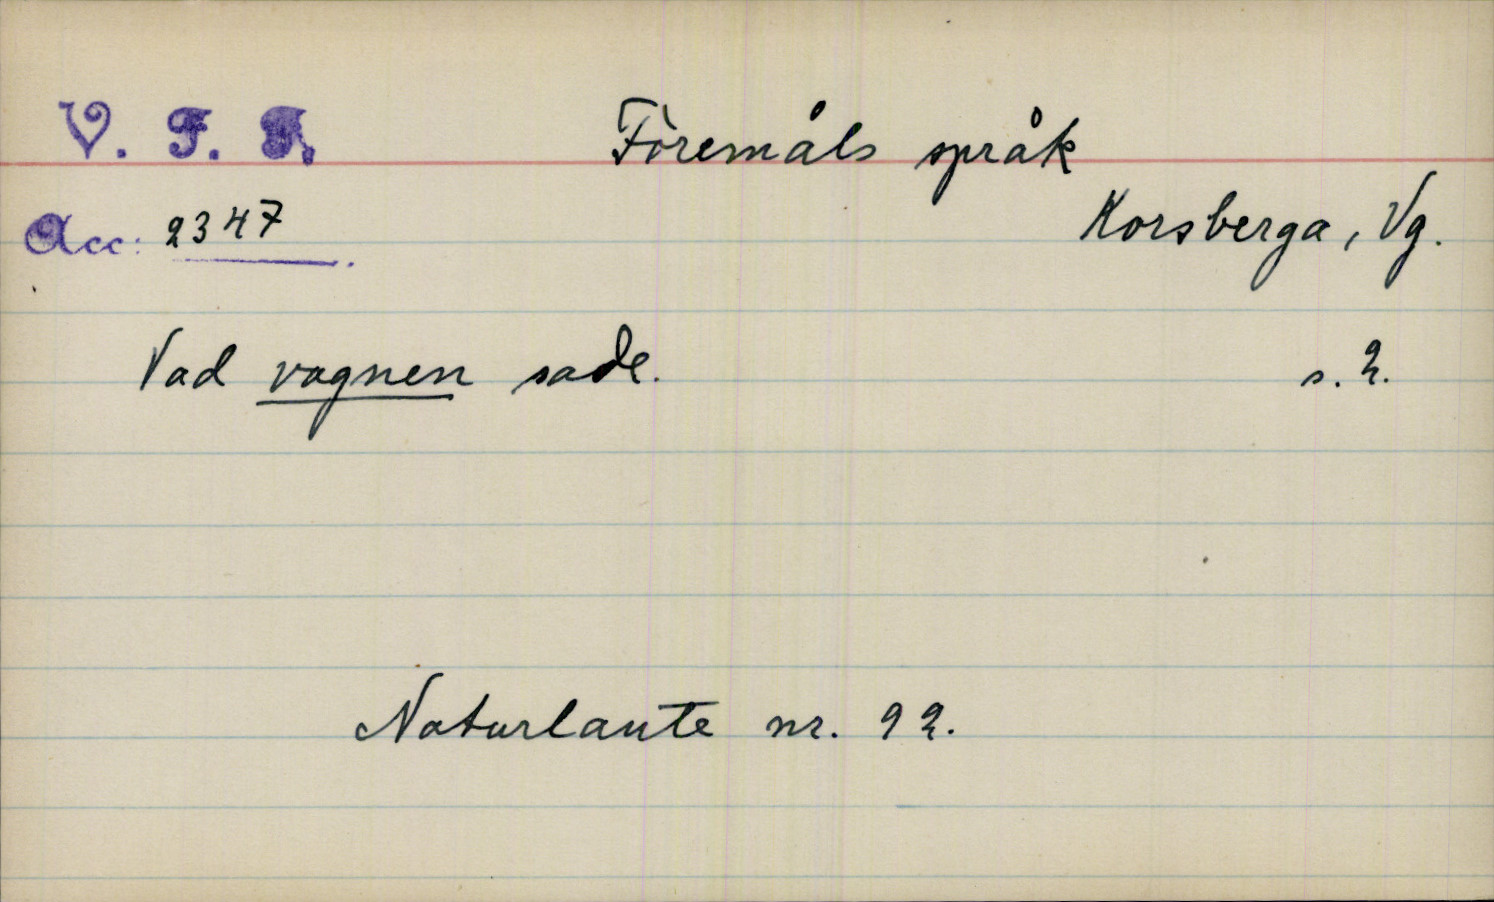 V. F. F.
Föremåls språk
Acc: 2347
Korsberga, Vg.
Vad vagnen sade.
s. 2.
Naturlaute nr. 92.